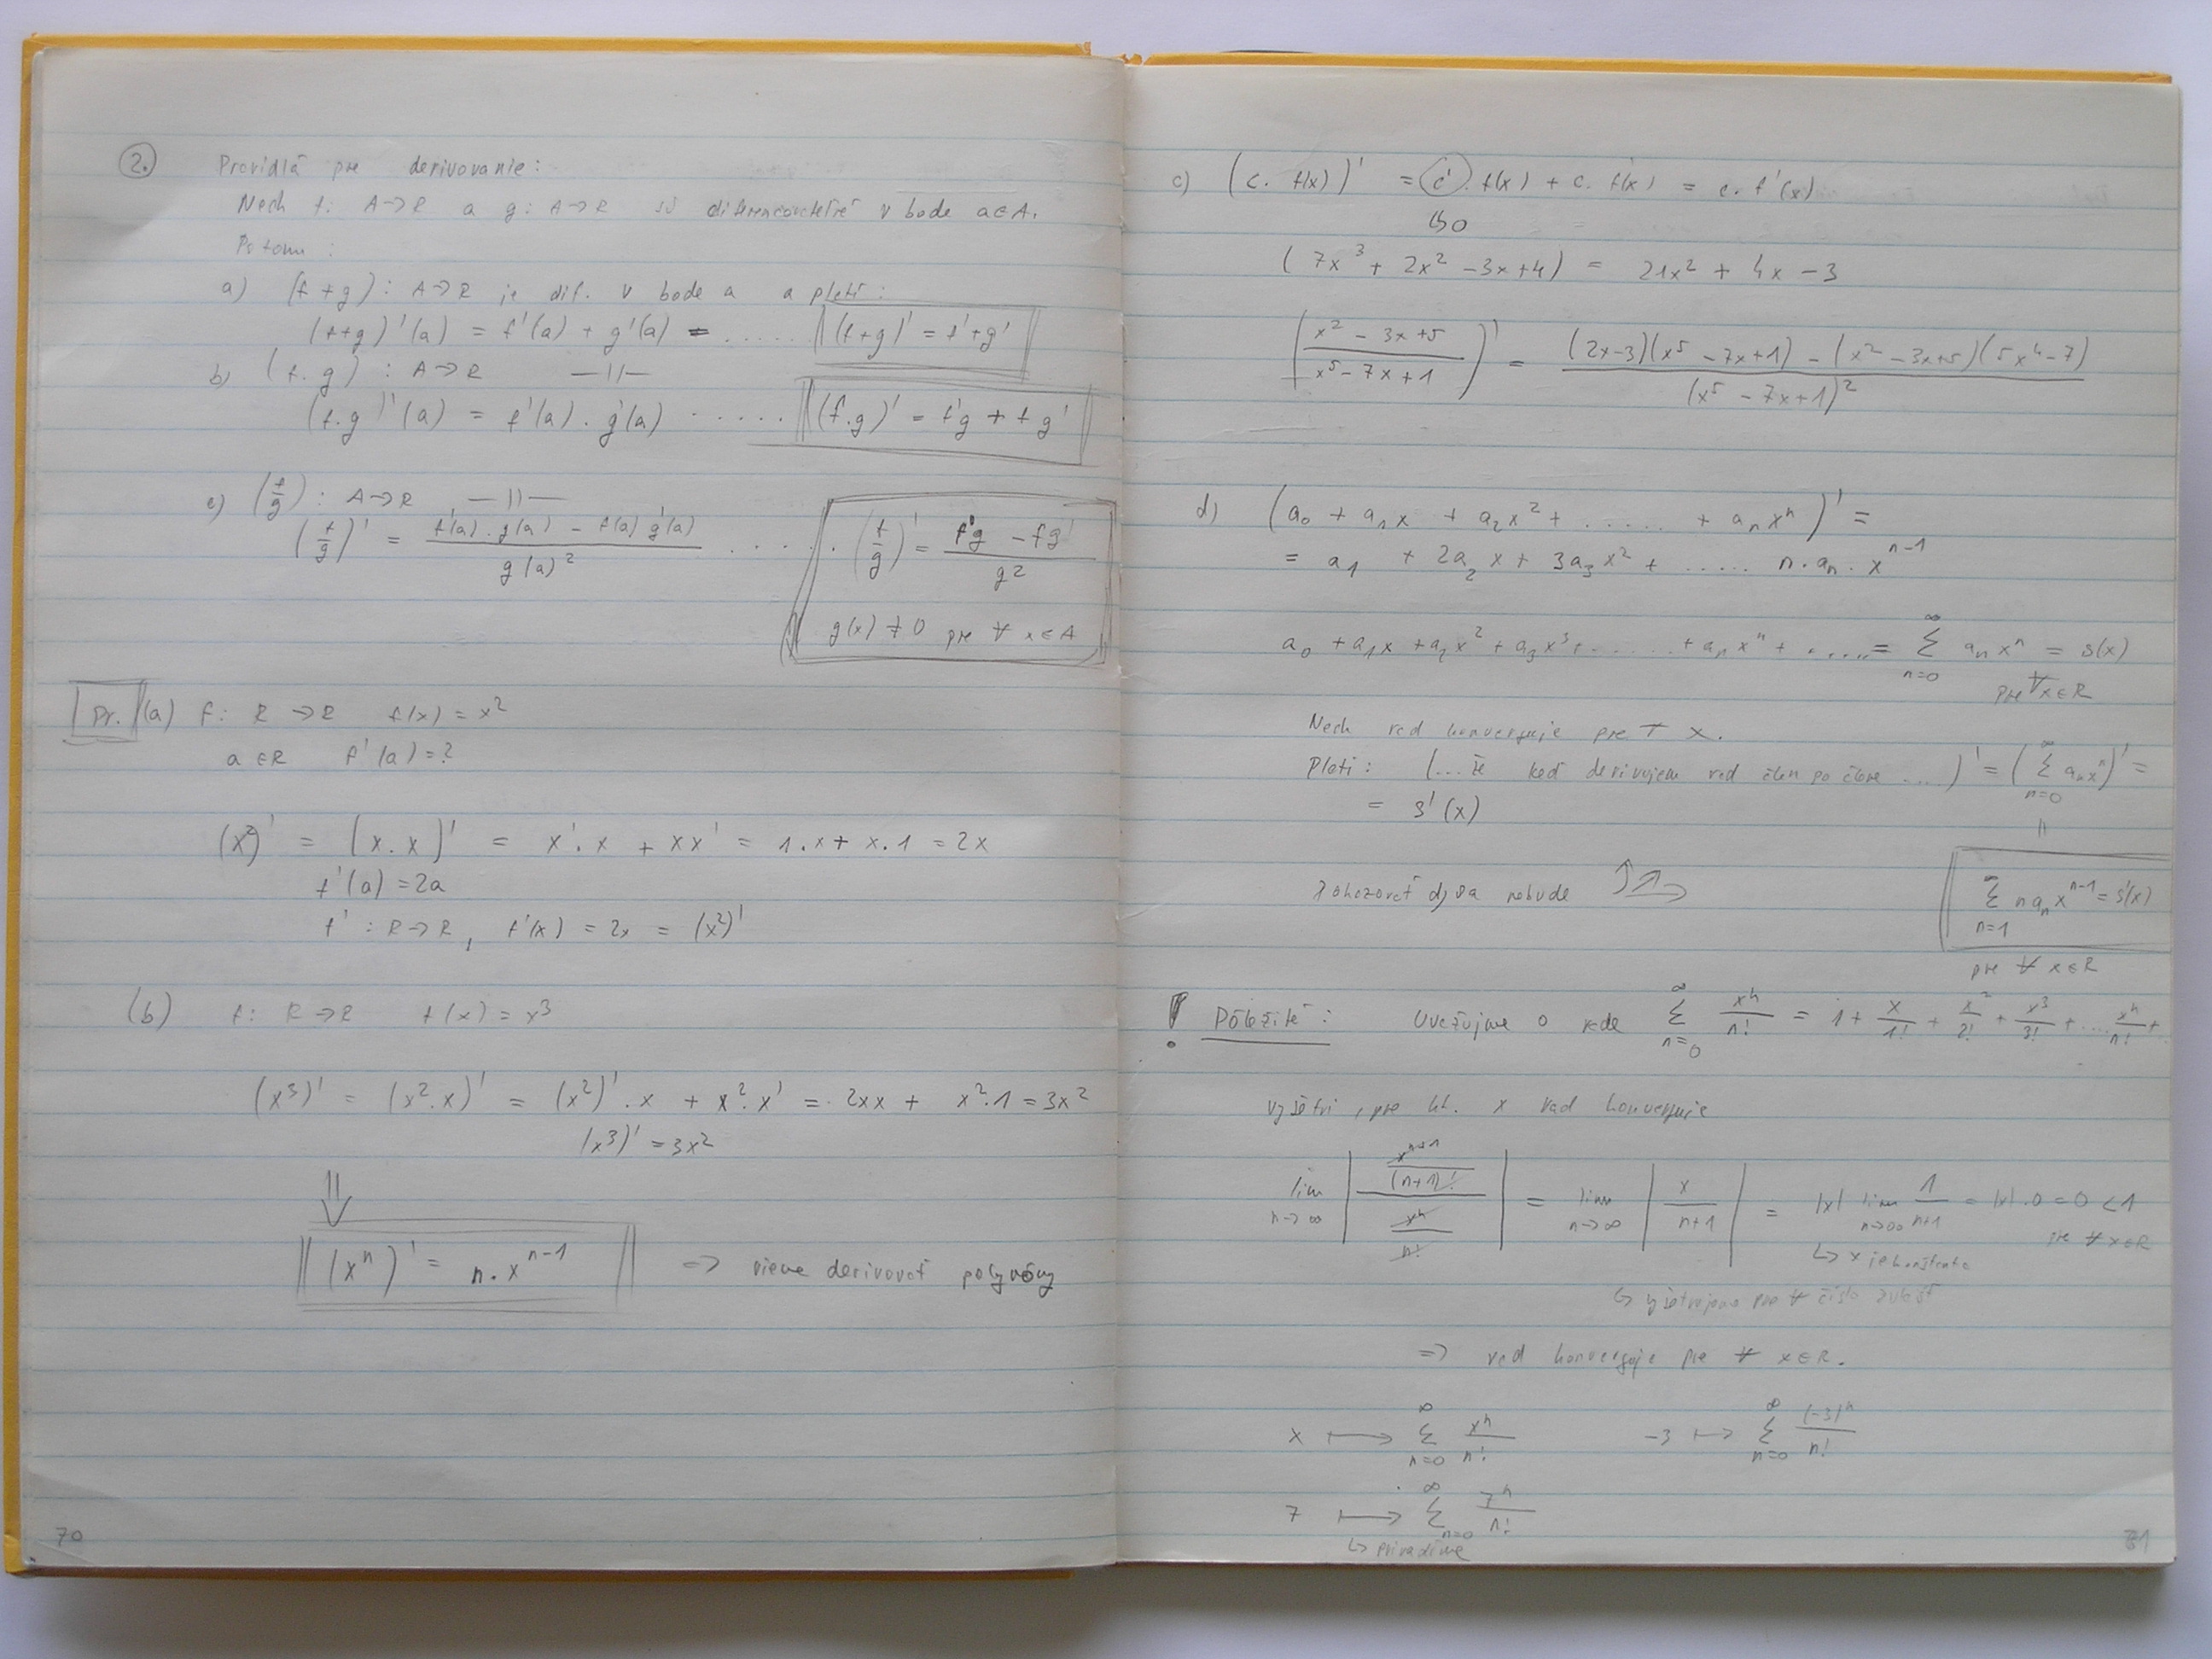 2. Pravidlá pre derivovanie:
Nech f: A→R a g: A→R sú diferencovateľné v bode a∈A.
Potom:
a) (f+g): A→R je dif. v bode a a platí:
(f+g)'(a) = f'(a) + g'(a) = ...... (f+g)' = f'+g'
b) (f.g): A→R —11—
(f.g)'(a) = f'(a) . g'(a) ...... (f.g)' = f'g + fg'
c) (f/g): A→R —11—
(f/g)' = f'(a).g(a) - f(a)g'(a) / g(a)² ...... (f/g)' = f'g - fg' / g²
g(x) ≠ 0 pre ∀ x∈A
Pr. (a) f: R→R f(x) = x²
a∈R f'(a) = ?
(x²)' = (x.x)' = x'.x + xx' = 1.x + x.1 = 2x
f'(a) = 2a
f': R→R, f'(x) = 2x = (x²)'
(b) f: R→R f(x) = x³
(x³)' = (x².x)' = (x²)'.x + x².x' = 2xx + x².1 = 3x²
(x³)' = 3x²
⇓
(xⁿ)' = n.xⁿ⁻¹ => vieme derivovať polynómy
70
c) (c. f(x))' = c'. f(x) + c. f'(x) = c. f'(x)
↳0
(7x³ + 2x² - 3x + 4) = 21x² + 4x - 3
(x² - 3x + 5 / x⁵ - 7x + 1)' = (2x-3)(x⁵ - 7x + 1) - (x² - 3x + 5)(5x⁴ - 7) / (x⁵ - 7x + 1)²
d) (a₀ + a₁x + a₂x² + ...... + aₙxⁿ)' =
= a₁ + 2a₂x + 3a₃x² + ..... n.aₙ.xⁿ⁻¹
a₀ + a₁x + a₂x² + a₃x³ + ...... + aₙxⁿ + ..... = ∞ Σ n=0 aₙxⁿ = s(x)
pre ∀x∈R
Nech rad konverguje pre ∀ x.
Platí: (... že keď derivujem rad člen po člene ...)' = (∞ Σ n=0 aₙxⁿ)' =
= s'(x)
||
dj sa nebude
∞ Σ n=1 naₙxⁿ⁻¹ = s'(x)
pre ∀ x∈R
! Dôležité: Uvažujme o rade ∞ Σ n=0 xⁿ/n! = 1 + x/1! + x²/2! + x³/3! + .... xⁿ/n! +
vyšetri, pre kt. x rad konverguje
lim n→∞ | xⁿ⁺¹/(n+1)! / xⁿ/n! | = lim n→∞ | x/n+1 | = |x| lim n→∞ 1/n+1 = |x|.0 = 0 < 1
pre ∀x∈R
↳ x je konštanta
↳ vyšetrujeme pre ∀ číslo zvlášť
=> rad konverguje pre ∀ x∈R.
x ⟼ ∞ Σ n=0 xⁿ/n! -3 ⟼ ∞ Σ n=0 (-3)ⁿ/n!
7 ⟼ ∞ Σ n=0 7ⁿ/n!
↳ priradíme
71